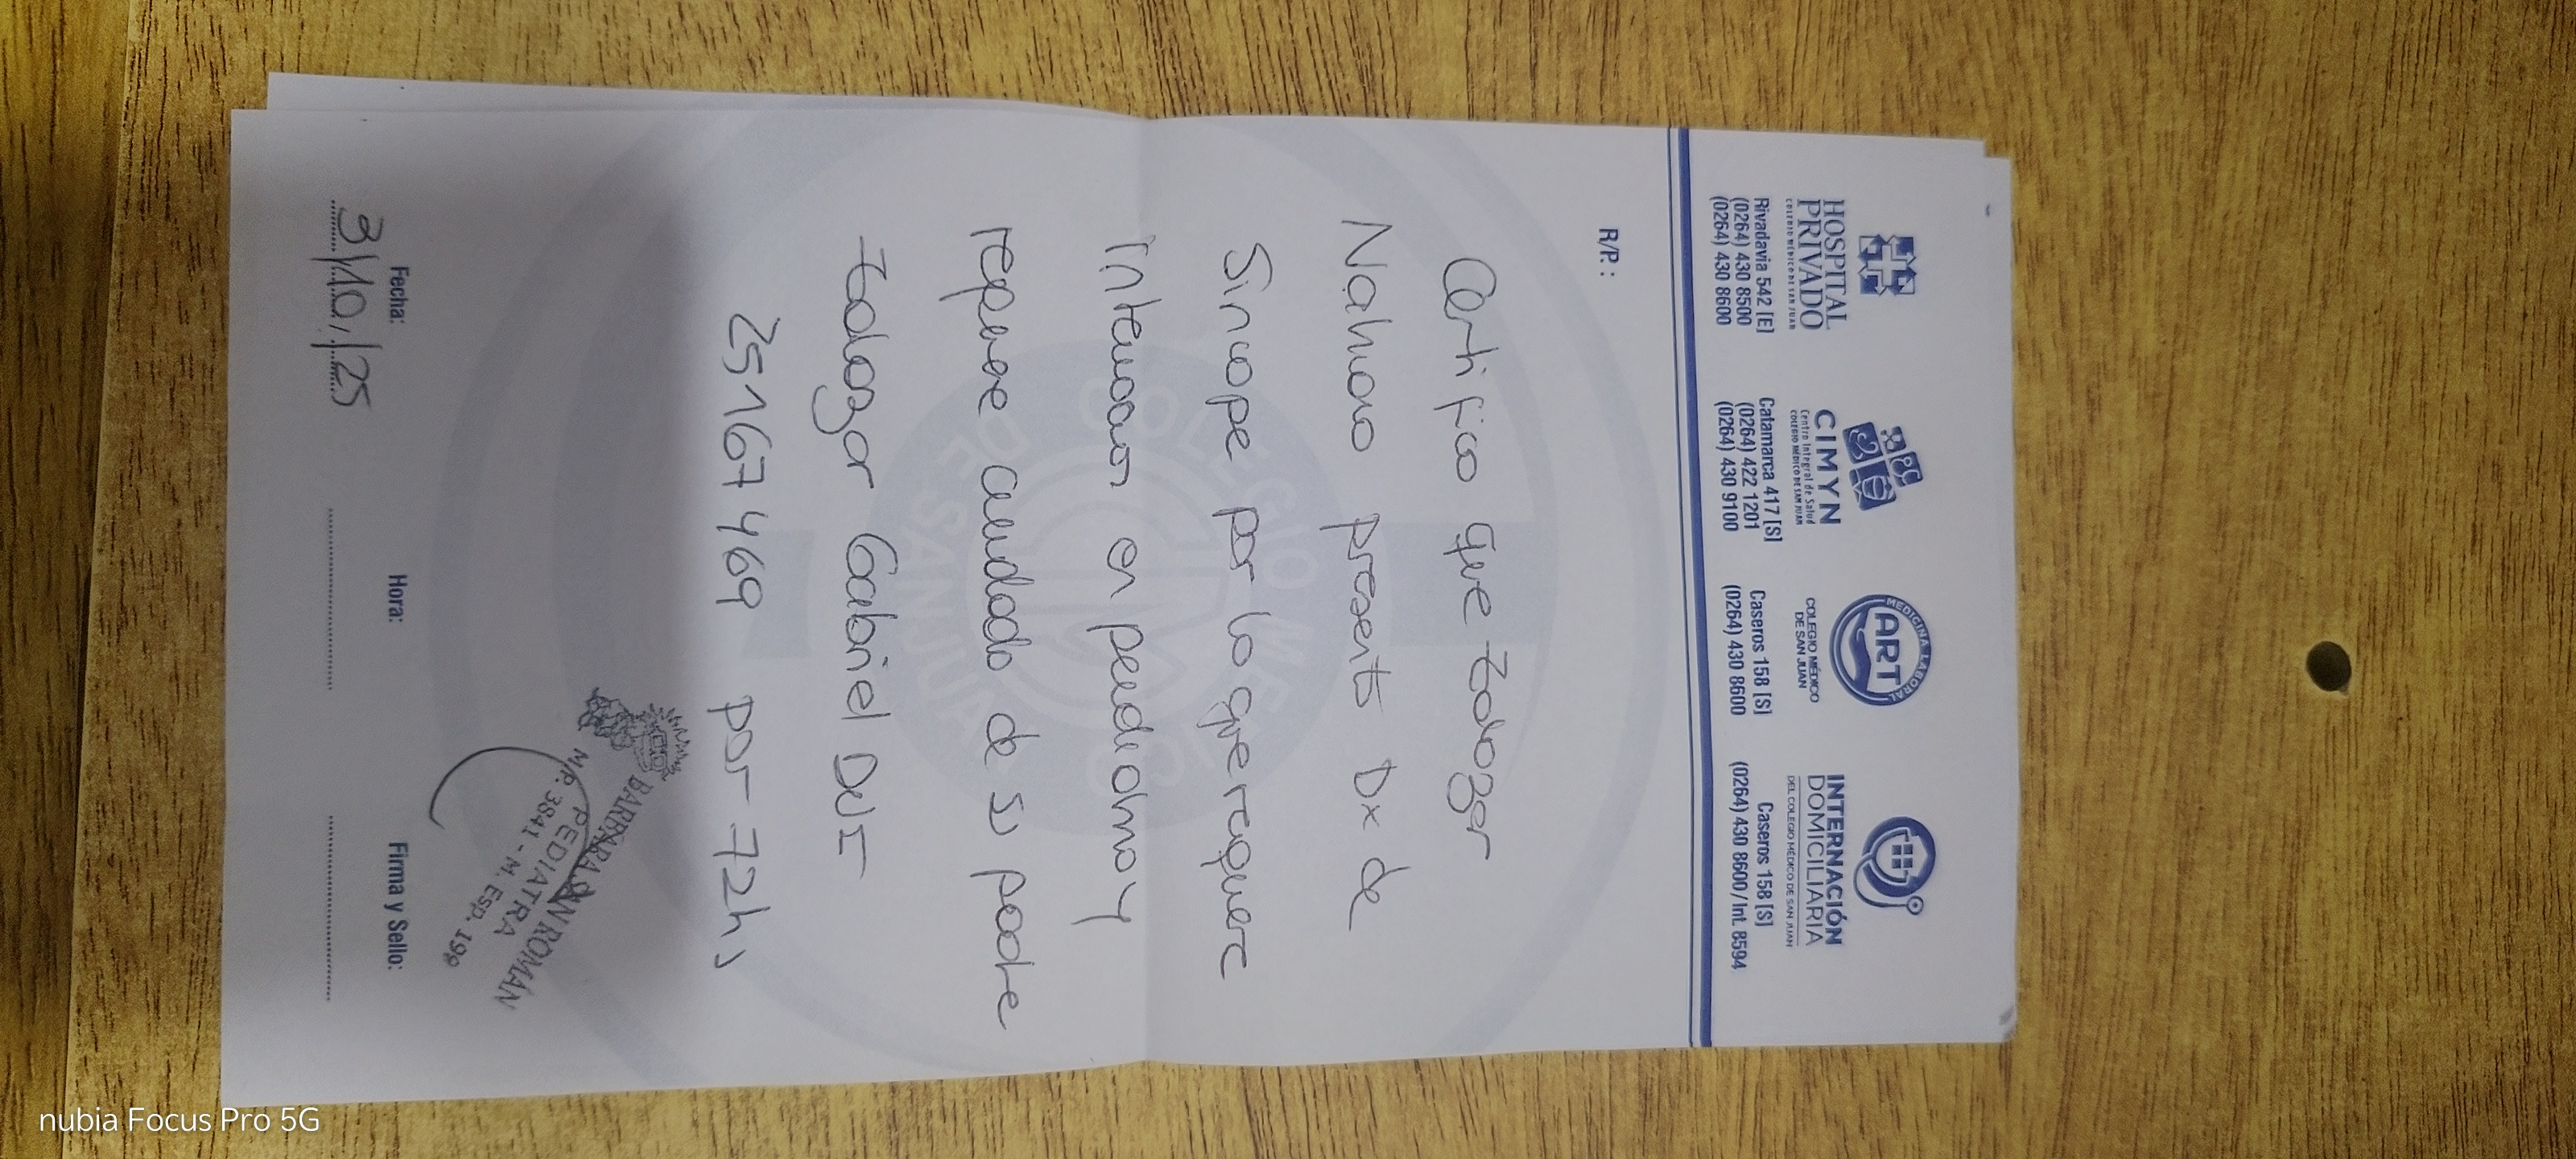 HOSPITAL
PRIVADO
COLEGIO MÉDICO DE SAN JUAN
Rivadavia 542 [E]
(0264) 430 8500
(0264) 430 8600
CIMYN
Centro Integral de Salud
COLEGIO MÉDICO DE SAN JUAN
Catamarca 417 [S]
(0264) 422 1201
(0264) 430 9100
MEDICINA LABORAL
ART
COLEGIO MÉDICO
DE SAN JUAN
Caseros 158 [S]
(0264) 430 8600
INTERNACIÓN
DOMICILIARIA
DEL COLEGIO MÉDICO DE SAN JUAN
Caseros 158 [S]
(0264) 430 8600/Int. 8594
R/P.:
Certifico que
presento Dx de
Sincope por lo que requiere
Internacion en pediatria y
requiere cuidado de su padre
Gabriel DNI
25167469 por 72hs
COLEGIO MEDICO
DE SAN JUAN
ROMÁN
PEDIATRA
M.P. 3841 - M. Esp.
Fecha:
3/10/25
Hora:
Firma y Sello:
nubia Focus Pro 5G